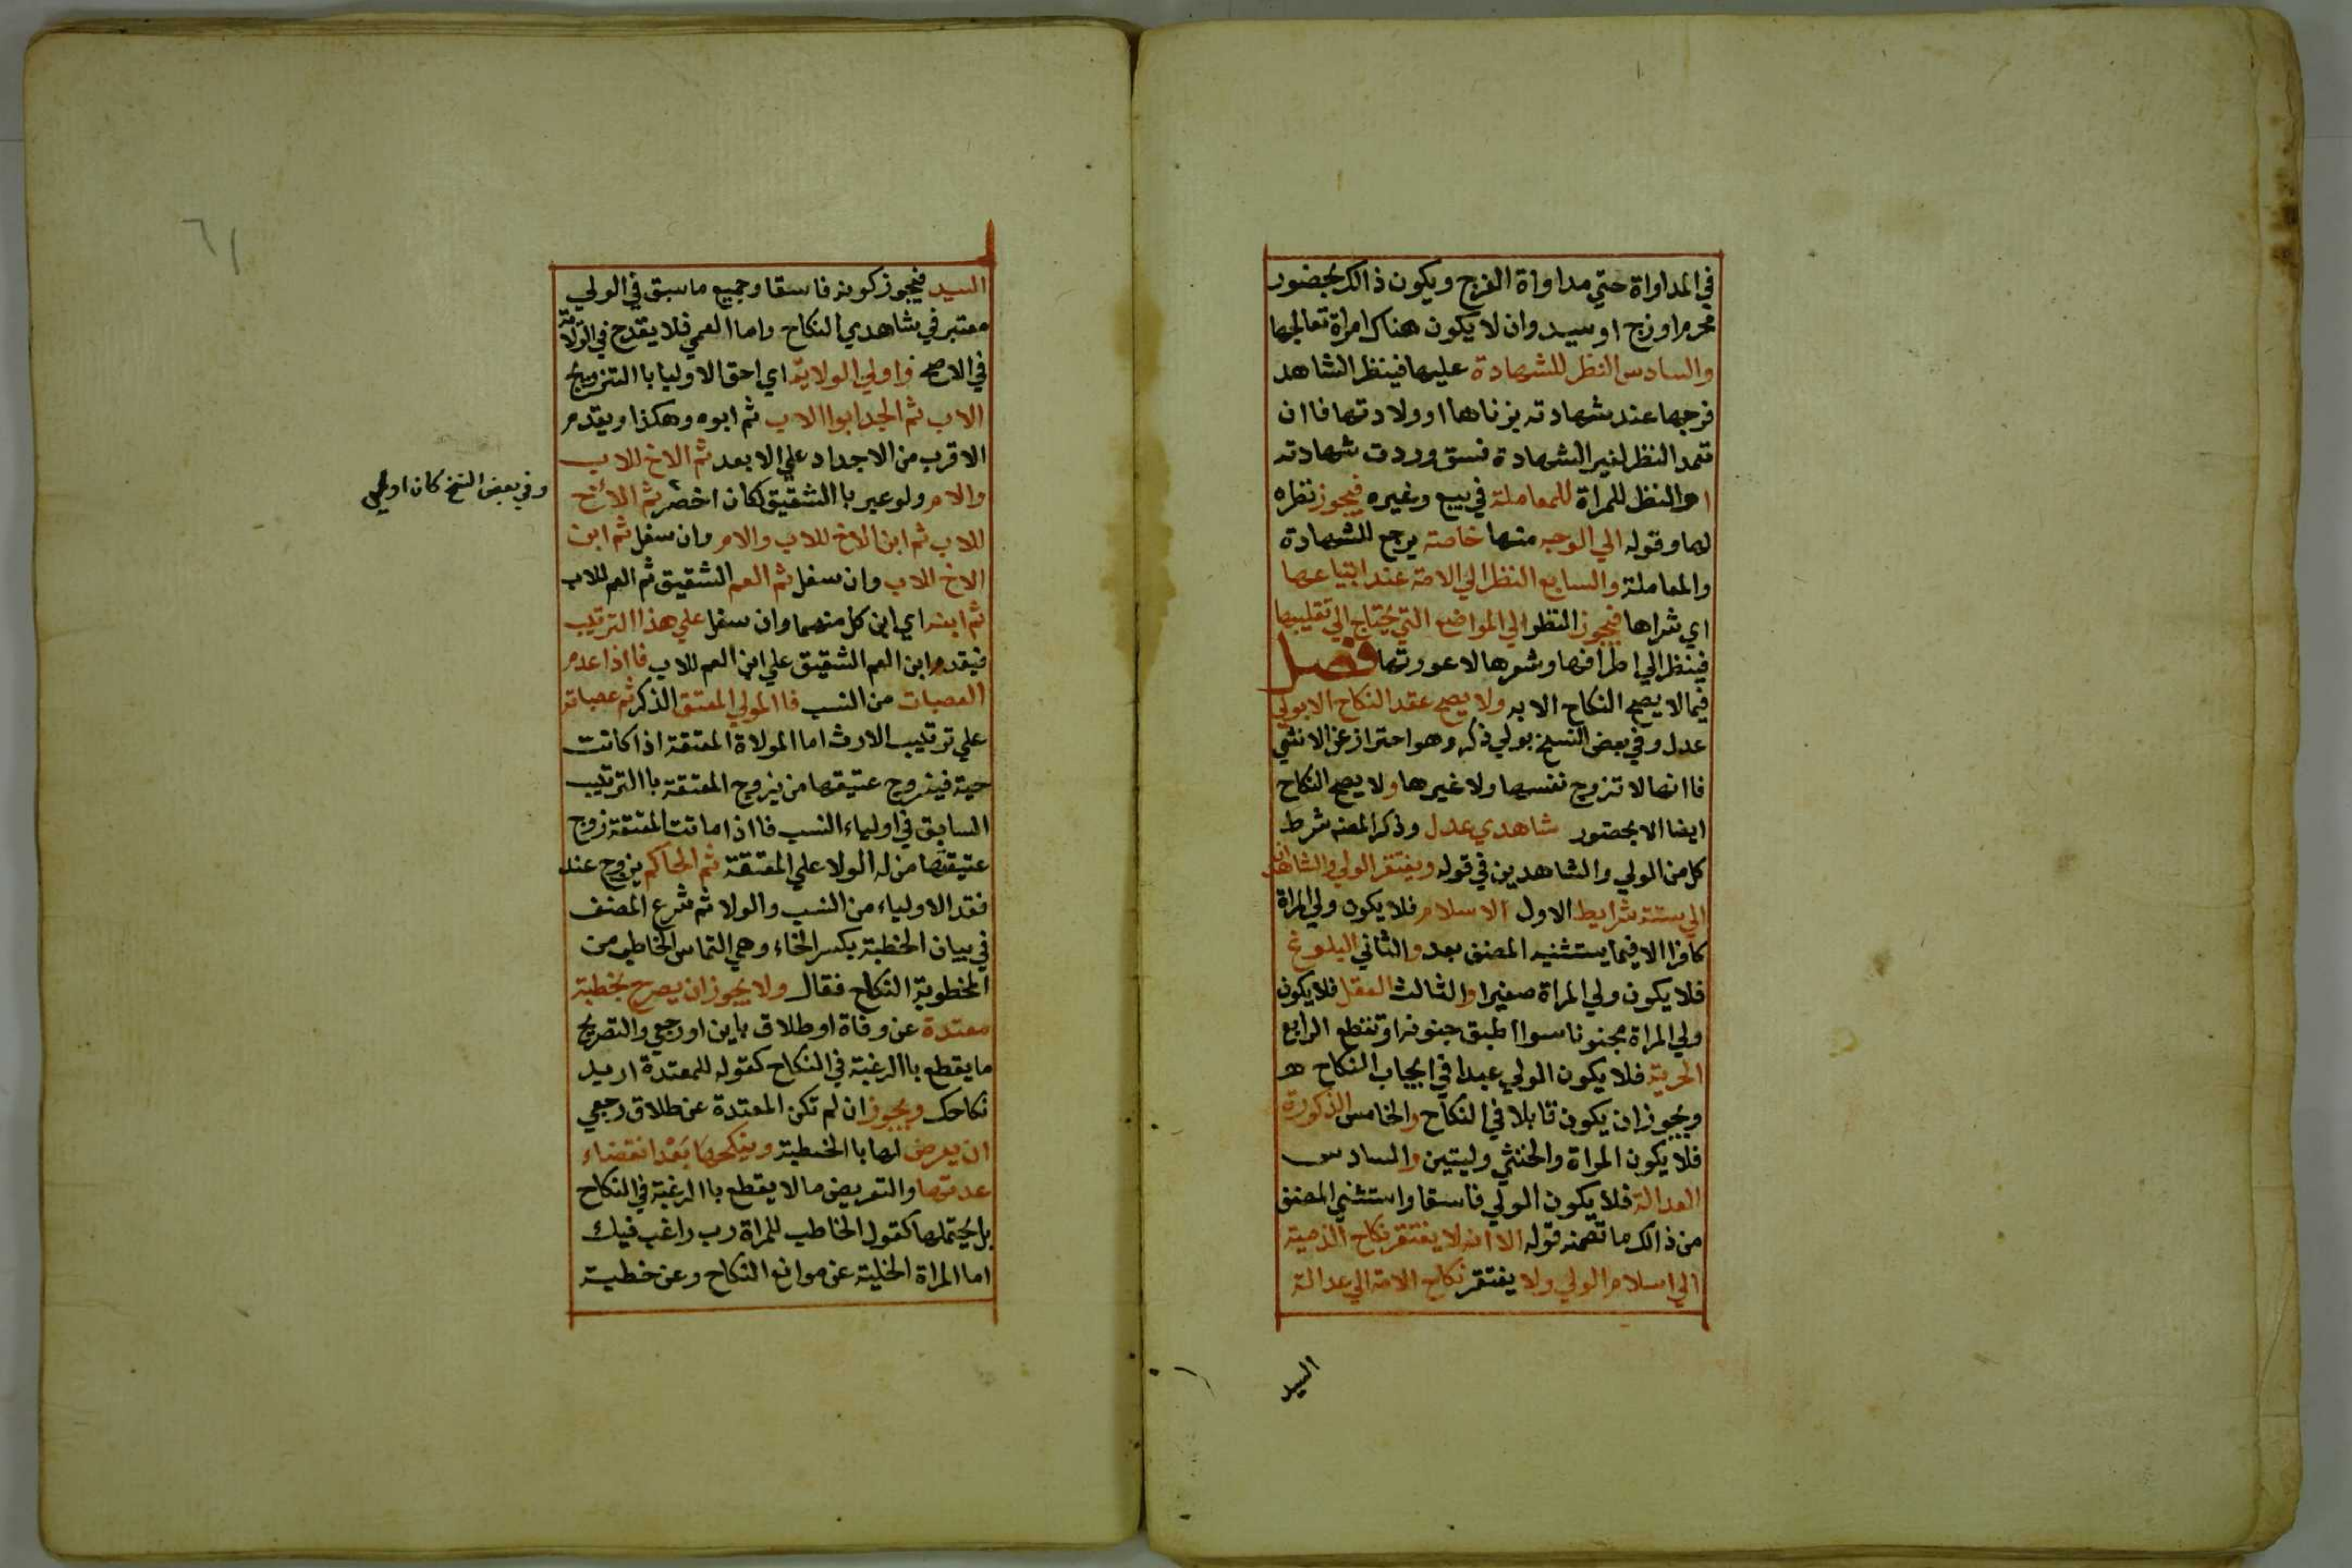 في المداواة حتي مداواة الفرج ويكون ذالك بحضور
محرم او زوج او سيد وان لا يكون هناك امراة تعالجها
والسادس النظر للشهادة عليها فينظر الشاهد
فرجها عند شهادته بزناها او ولادتها فاان
تعمد النظر لغير الشهادة فسق وردت شهادته
او النظر للمراة للمعاملة في بيع وغيره فيجوز نظره
لها وقوله الي الوجه منها خاصة يرجع للشهادة
والمعاملة والسابع النظر الي الامة عند ابتياعها
اي شراها فيجوز النظر الي المواضع التي يحتاج الي تقليبها
فينظر الي اطرافها وشعرها لا عورتها فصل
فيما لا يصح النكاح الا به ولا يصح عقد النكاح الا بولي
عدل وفي بعض النسخ بولي ذكر وهو احتراز عن الانثي
فاانها لا تزوج نفسها ولا غيرها ولا يصح النكاح
ايضا الا بحضور شاهدي عدل وذكر المصنف شرط
كل من الولي والشاهدين في قوله ويفتقر الولي والشاهدان
الي ستة شرايط الاول الاسلام فلا يكون ولي المراة
كافرا الا فيما يستثنيه المصنف بعد والثاني البلوغ
فلا يكون ولي المراة صغيرا والثالث العقل فلا يكون
ولي المراة مجنونا سوا اطبق جنونه او تقطع الرابع
الحرية فلا يكون الولي عبدا في ايجاب النكاح هـ
ويجوز ان يكون قابلا في النكاح والخامس الذكورة
فلا يكون المراة والخنثي وليتين والسادس
العدالة فلا يكون الولي فاسقا واستثني المصنف
من ذالك ما تضمنه قوله الا انه لا يفتقر نكاح الذمية
الي اسلام الولي ولا يفتقر نكاح الامة الي عدالة
السيد
٦١
السيد فيجوز كونه فاسقا وجميع ما سبق في الولي
معتبر في شاهدي النكاح واما العمي فلا يقدح في الولاية
في الاصح واولي الولاية اي احق الاوليا باالتزويج
الاب ثم الجد ابوا الاب ثم ابوه وهكذا ويقدم
الاقرب من الاجداد علي الابعد ثم الاخ للاب
والام ولو عبر باالشقيق لكان اخصر ثم الاخ
وفي بعض النسخ كان اولي
للاب ثم ابن الاخ للاب والام وان سفل ثم ابن
الاخ للاب وان سفل ثم العم الشقيق ثم العم للاب
ثم ابنه اي ابن كل منهما وان سفل علي هذا الترتيب
فيقدم ابن العم الشقيق علي ابن العم للاب فااذا عدم
العصبات من النسب فاالمولي المعتق الذكر ثم عصباته
علي ترتيب الارث اما المولاة المعتقة اذا كانت
حية فيزوج عتيقتها من يزوج المعتقة باالترتيب
السابق في اولياء النسب فااذا ماتت المعتقة زوج
عتيقتها من له الولا علي المعتقة ثم الحاكم يزوج عند
فقد الاولياء من النسب والولا ثم شرع المصنف
في بيان الخطبة بكسر الخاء وهي التماس الخاطب من
المخطوبة النكاح فقال ولا يجوز ان يصرح بخطبة
معتدة عن وفاة او طلاق باين او رجعي والتصريح
ما يقطع باالرغبة في النكاح كقوله للمعتدة اريد
نكاحك ويجوز ان لم تكن المعتدة عن طلاق رجعي
ان يعرض لها باالخطبة وينكحها بعد انقضاء
عدتها والتعريض ما لا يقطع باالرغبة في النكاح
بل يحتملها كقول الخاطب للمراة رب راغب فيك
اما المراة الخلية عن موانع النكاح وعن خطبة